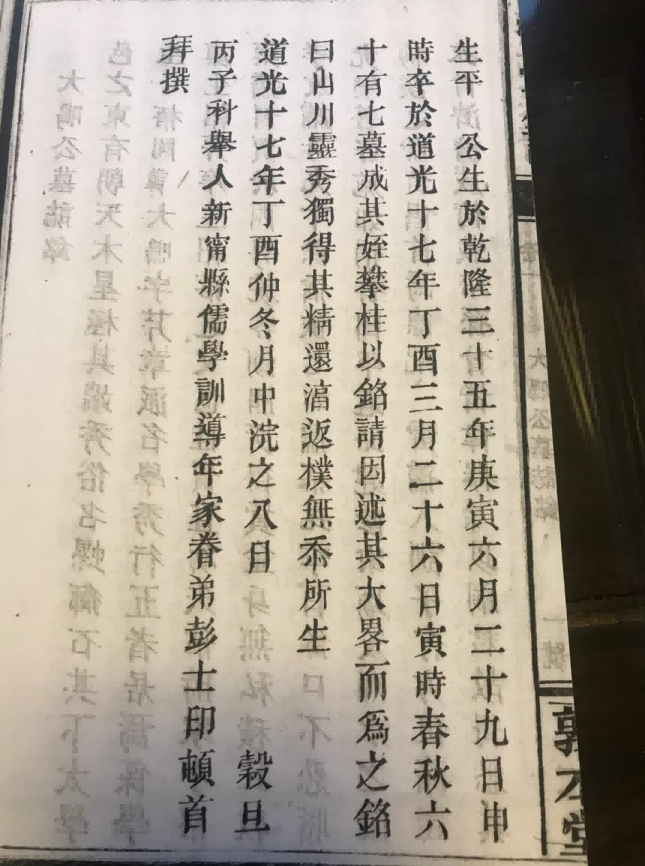 生平 公生於乾隆三十五年庚寅六月二十九日申
時卒於道光十七年丁酉三月二十六日寅時春秋六
十有七墓成其姪攀桂以銘請因述其大畧而爲之銘
曰山川靈秀獨得其精還湻返樸無忝所生
道光十七年丁酉仲冬月中浣之八日 穀旦
丙子科舉人新甯縣儒學訓導年家眷弟彭士印頓首
拜撰
敦本堂